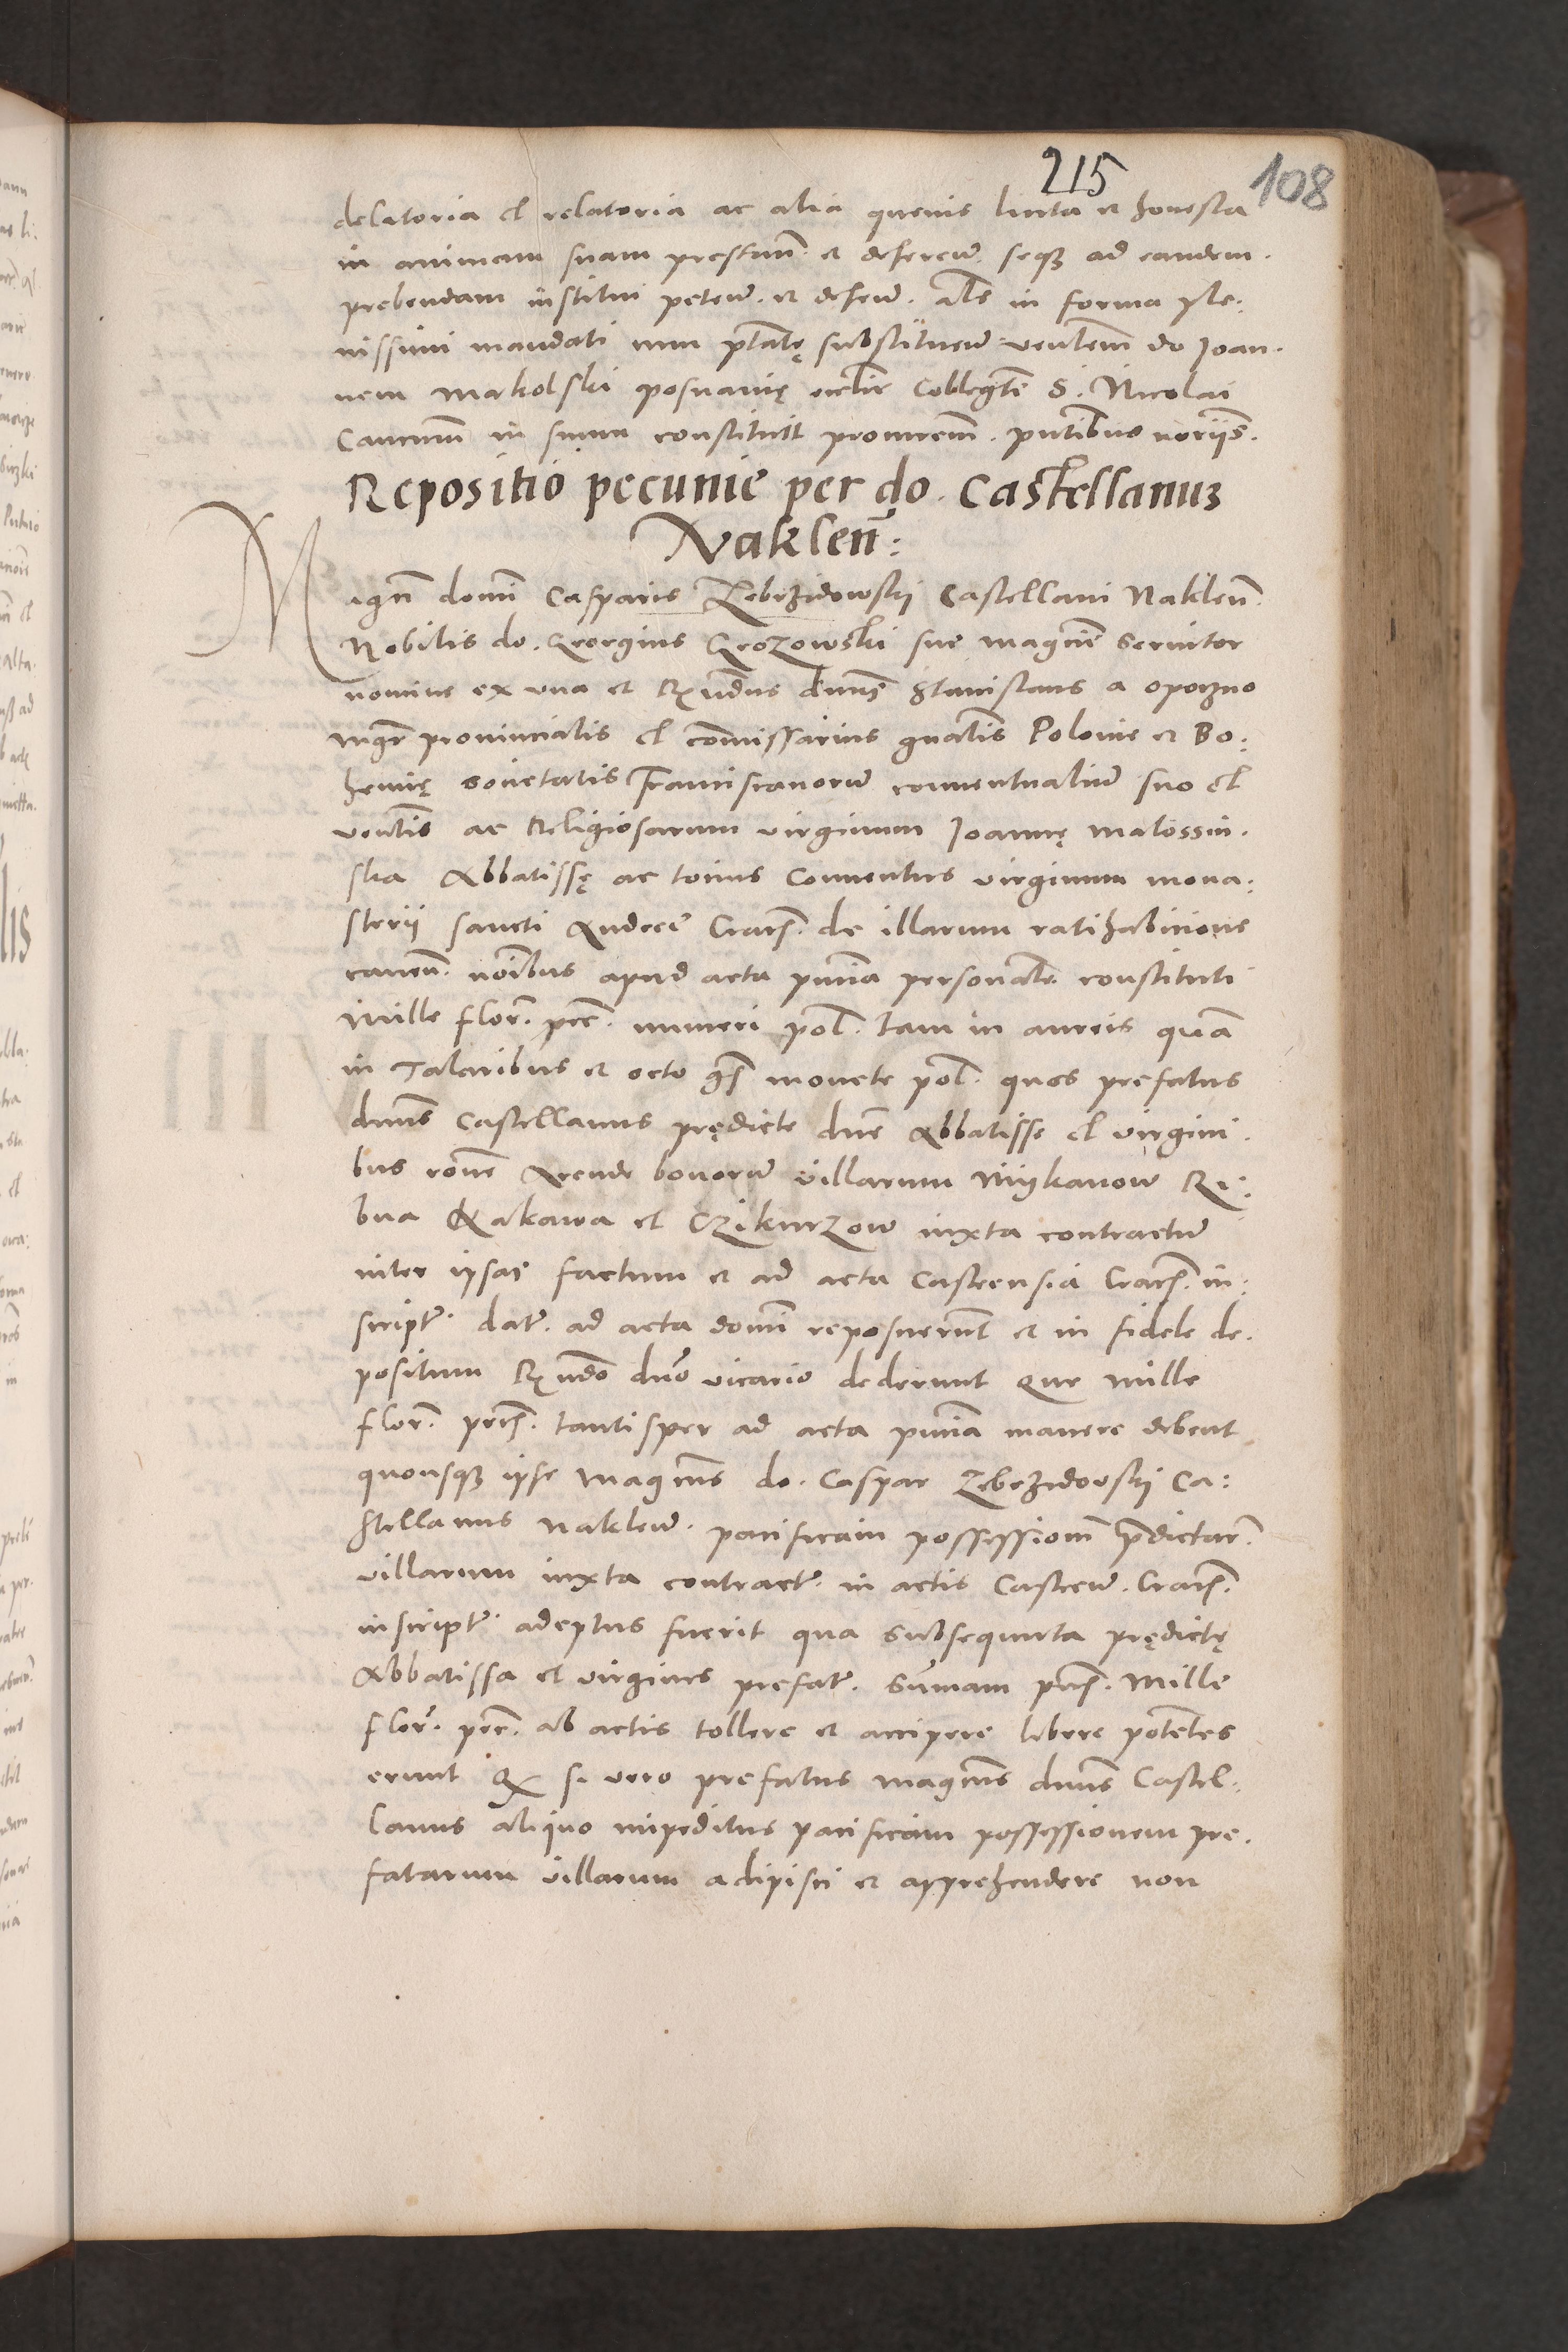 215 108
delatoria et relatoria ac alia quevis licita et honesta
in animam suam prestan̄. et deferen̄. seqz ad eandem.
prebendam institui peten̄. et defen̄. als in forma ple:
nissimi mandati cum ptatę substituen̄ venlem̄ do Joan.
nem Makolski posnanię ecclie Collegte S. Nicolai
Canicum̄ in suum constituit procurem̄. pntibus noriis.
Repositio pecunie per do. Castellanuz
Naklen̄:
Magn̄ domi Casparis Zebrzidowskij Castellani Naklen̄.
Nobilis do. Georgius Grozowski sue Magcie Servitor
nomine ex una et Rṇdus dnus Stanislaus a Opoczno
mgr provincialis et commissarius gnalis Polonie et Bo:
hemię sovietatis Franciscanorum conventualium suo et
venlis ac Religiosarum virginum Joannę Malossin.
ska Abbatissę ac totius Conventus virginum mona:
sterii sancti Andree Cracs. de illarum ratihabicione
caven̄. noibus apud acta pnña personale constituti
Mille flor. pec. numeri pol. tam in aureis quam
in Taleribus et octo gs monete pol. quos prefatus
dnus Castellanus prędicte dne Abbatisse et virgini.
bus rone Arende bonorum villarum Miykanow Ri:
bna Kakawa et Czikurzow iuxta contractum
inter ipsas factum et ad acta Castrensia Cracs. in:
script. dat. ad acta domi reposuerunt et in fidele de.
positum Rṇdo dno vicario dederunt Que mille
flor. pecs. tantisper ad acta pnña manere debent
quousqz ipse Magcus do. Caspar Zebrzidowskij Ca:
stellanus Naklen̄. pacificam possessionem predictar.
villarum iuxta contract. in actis Castren̄. Cracs.
inscript. adeptus fuerit qua subsequuta prędictę
Abbatissa et virgines prefat. summam pns. Mille
flor. pec. ab actis tollere et accipere libere potentes
erunt Q si vero prefatus Magcus dnus Castel.
lanus aliquo impeditus pacificam possessionem pre.
fatarum villarum adipisci et apprehendere non